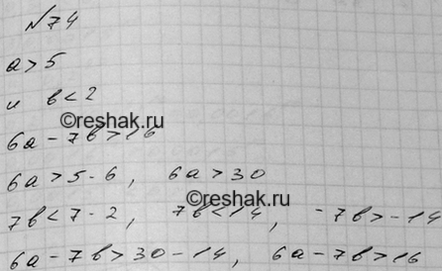 №74
a > 5
и b < 2
6a - 7b > 16
©reshak.ru
6a > 5·6, 6a > 30
©reshak.ru
7b < 7·2, 7b < 14, -7b > -14
6a - 7b > 30 - 14, 6a - 7b > 16